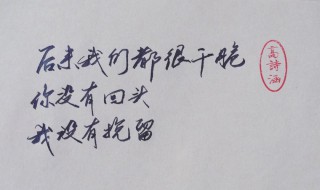 后来我们都很干脆
你没有回头
我没有挽留
高诗涵